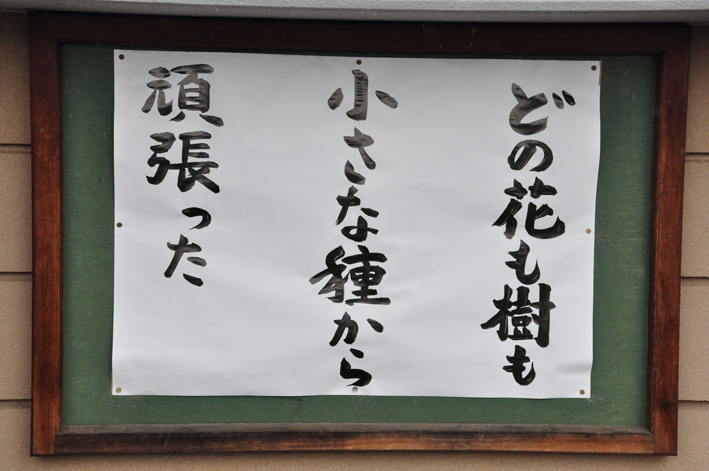 どの花も樹も
小さな種から
頑張った